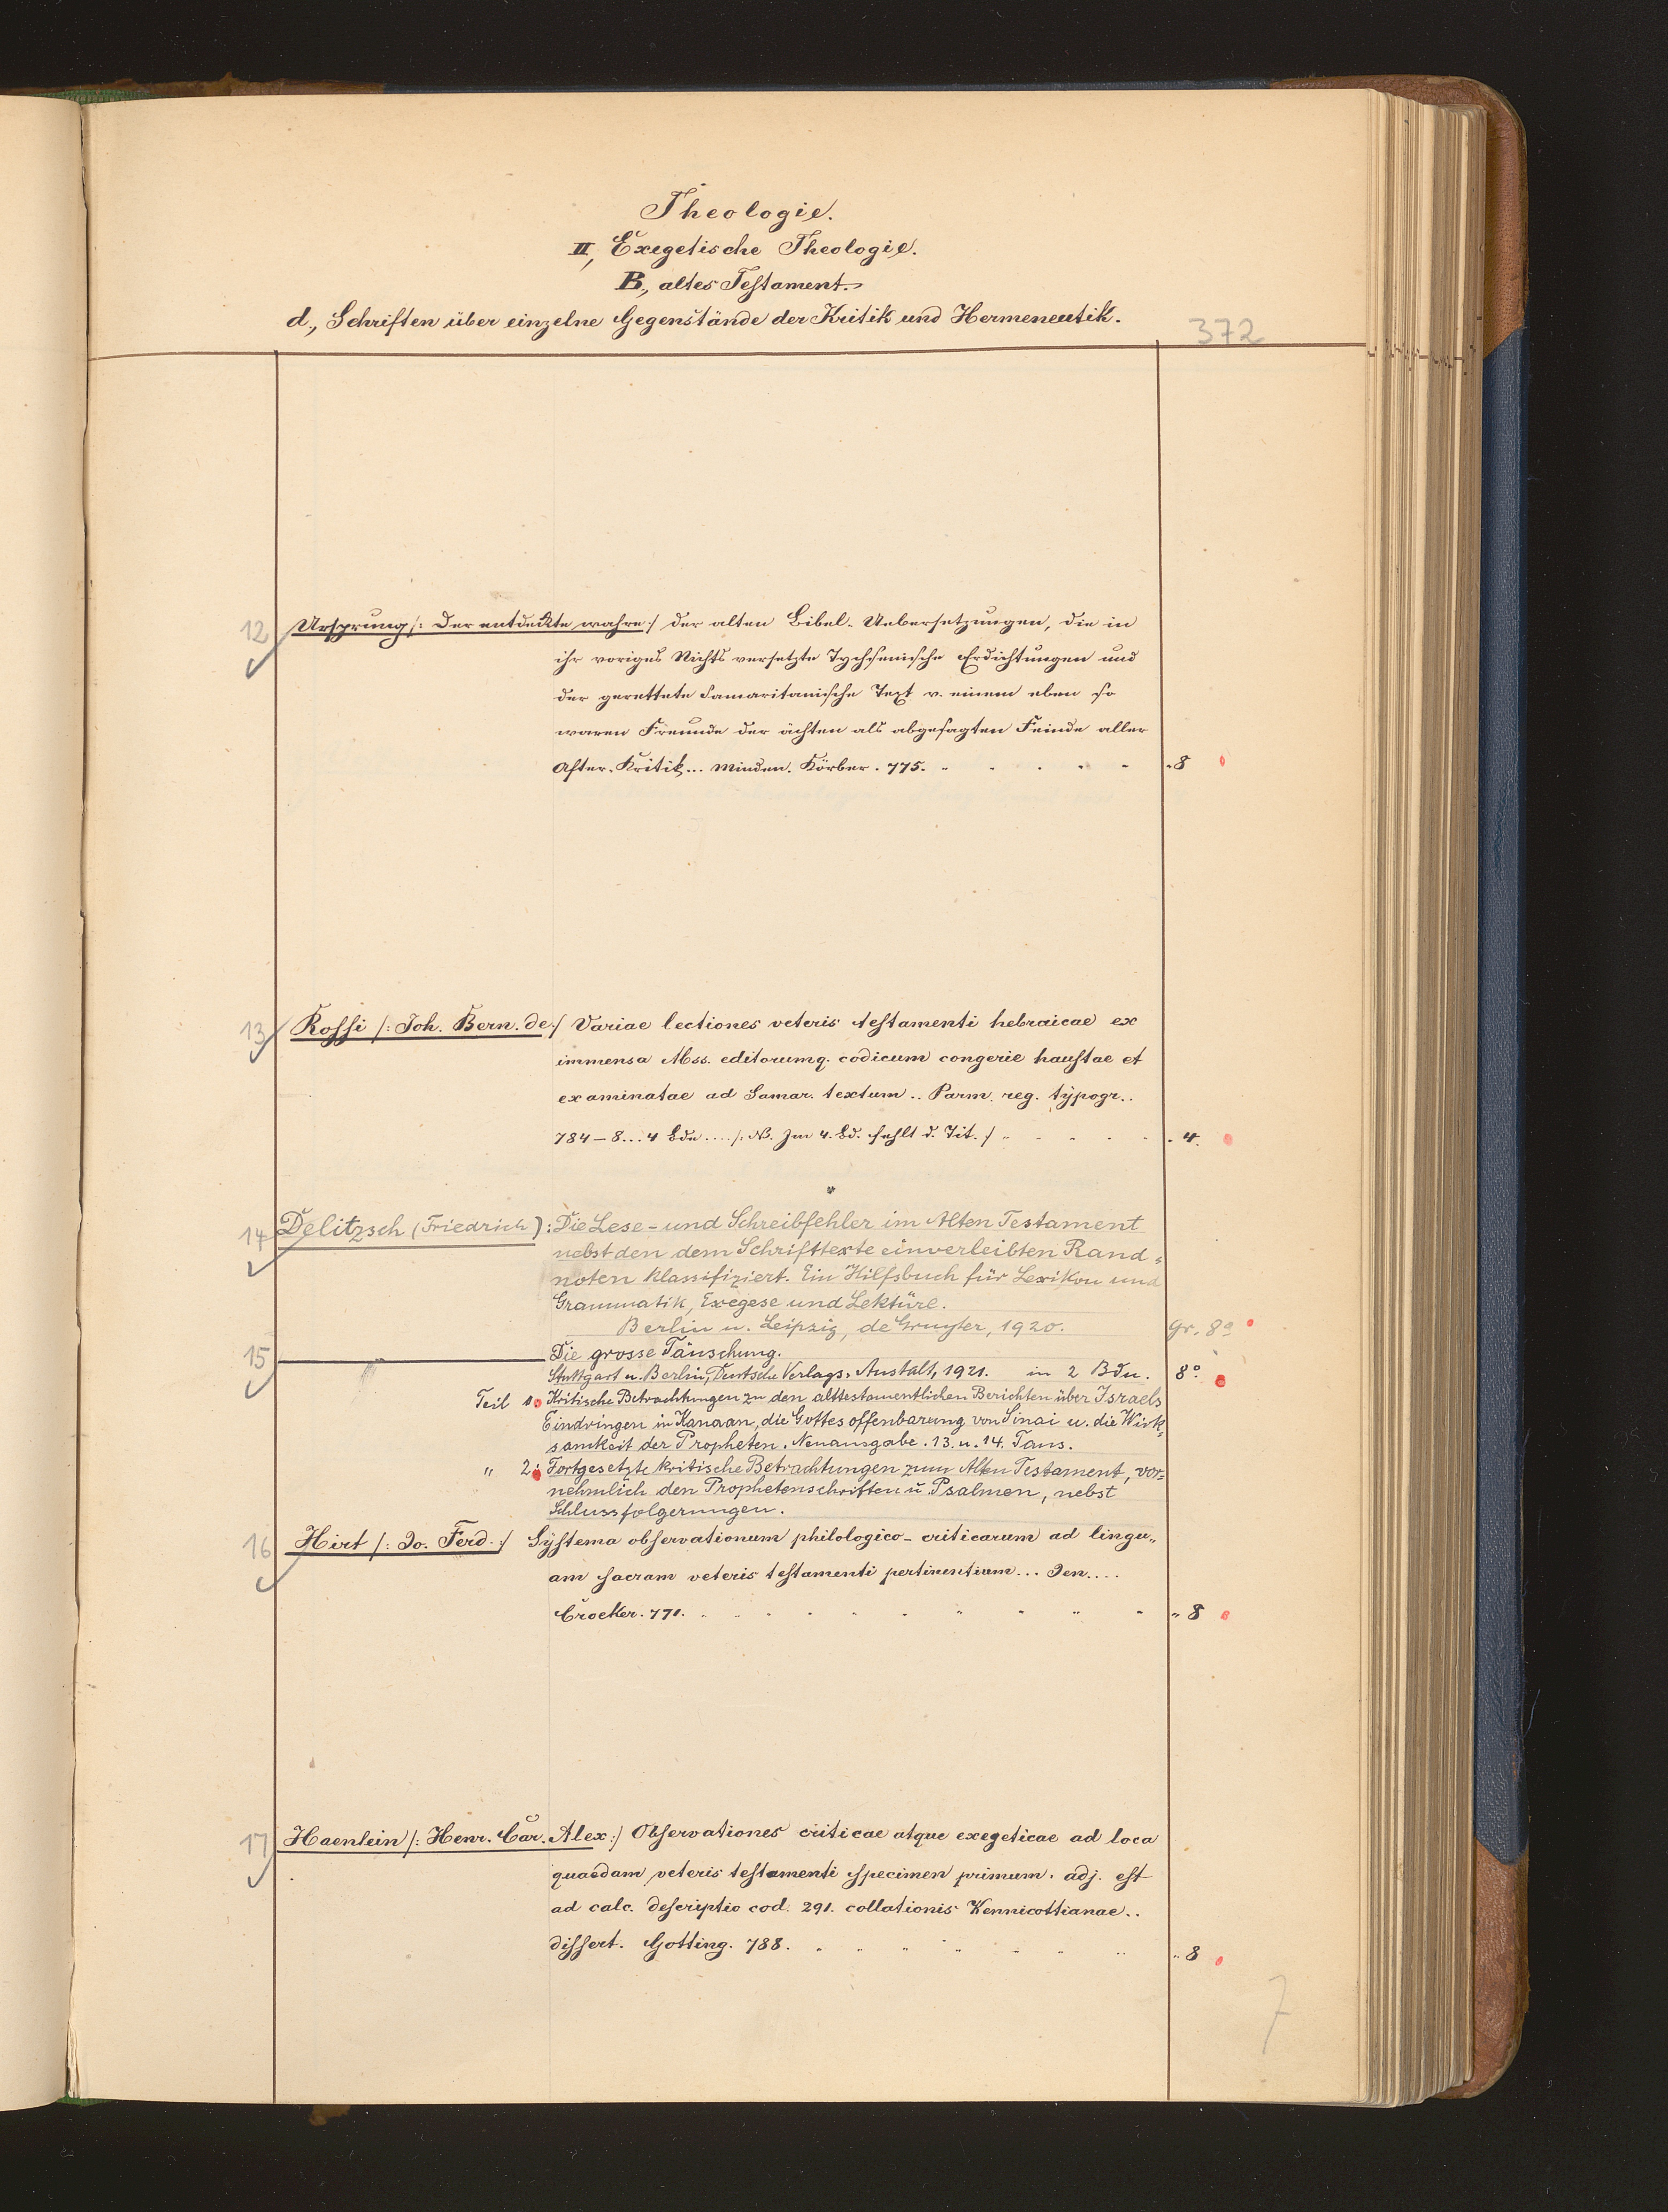 Theologie.
II, Exegetische Theologie.
B., altes Testament.
d., Schriften über einzelne Gegenstände der Kritik und Hermeneutik.
372
12 Ursprung /: der entdeckte wahre :/ der alten Bibel-Uebersetzungen, die in
ihr voriges Nichts versetzte Tychsenische Erdichtungen und
der gerettete Samaritanische Text v. einem eben so
waren Freunde der ächten als abgesagten Feinde aller
After-Kritik... Minden. Körber. 775. „ 8
13 Rossi /: Joh. Bern. de :/ Variae lectiones veteris testamenti hebraicae ex
immensa Mss. editorumq. codicum congerie haustae et
examinatae ad Samar. textum .. Parm. reg. typogr..
784–8... 4 Bde..../: NB. Im 4. Bd. fehlt d. Tit. :/ „ 4.
14 Delitzsch (Friedrich): Die Lese- und Schreibfehler im Alten Testament
nebst den dem Schrifttexte einverleibten Rand=
noten klassifiziert. Ein Hilfsbuch für Lexikon und
Grammatik, Exegese und Lektüre.
Berlin u. Leipzig, de Gruyter, 1920. gr. 8º
15 ——— Die grosse Täuschung.
Stuttgart u. Berlin, Deutsche Verlags-Anstalt, 1921. in 2 Bdn. 8º
Teil 1. Kritische Betrachtungen zu den alttestamentlichen Berichten über Israels
Eindringen in Kanaan, die Gottesoffenbarung von Sinai u. die Wirk=
samkeit der Propheten. Neuausgabe. 13. u. 14. Taus.
„ 2: Fortgesetzte kritische Betrachtungen zum Alten Testament, vor=
nehmlich den Prophetenschriften u. Psalmen, nebst
Schlussfolgerungen.
16 Hirt /: Jo. Ferd. :/ Systema observationum philologico-criticarum ad lingu„
am sacram veteris testamenti pertinentium... Jen....
Croeker. 771. „ 8
17 Haenlein /: Henr. Car. Alex :/ Observationes criticae atque exegeticae ad loca
quaedam veteris testamenti specimen primum. adj. est
ad calc. descriptio cod. 291. collationis Kennicottianae..
dissert. Gotting. 788. „ 8
7